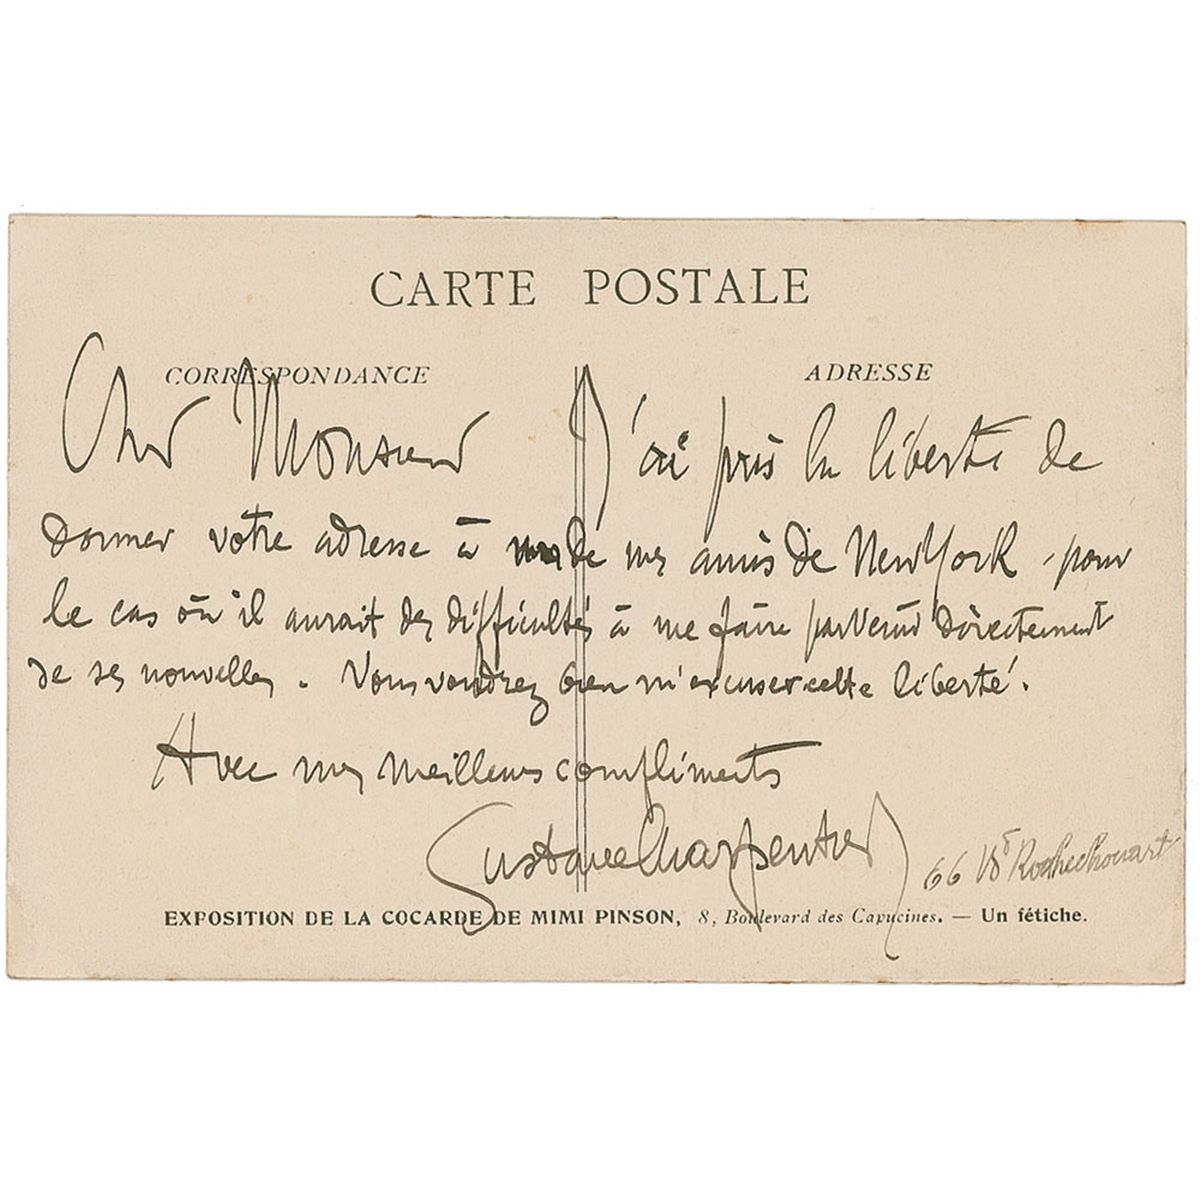 CARTE POSTALE
CORRESPONDANCE
ADRESSE
Cher Monsieur J'ai pris la liberté de
donner votre adresse à un de mes amis de New York - pour
le cas où il aurait des difficultés à me faire parvenir directement
de ses nouvelles. Vous voudrez bien m'excuser cette liberté.
Avec mes meilleurs compliments
Gustave Charpentier
66 Bd Rochechouart
EXPOSITION DE LA COCARDE DE MIMI PINSON, 8, Boulevard des Capucines. — Un fétiche.